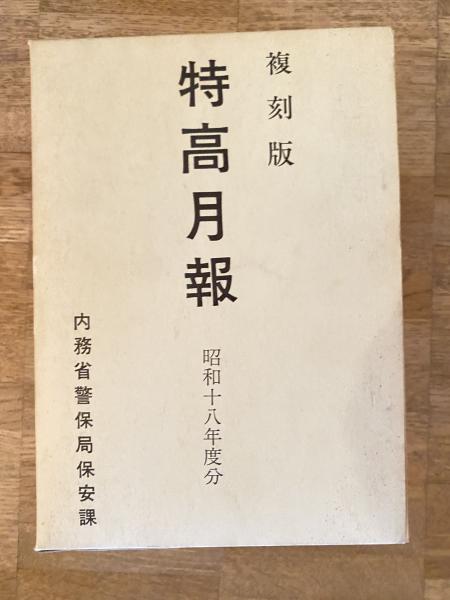 複刻版
特高月報
昭和十八年度分
内務省警保局保安課